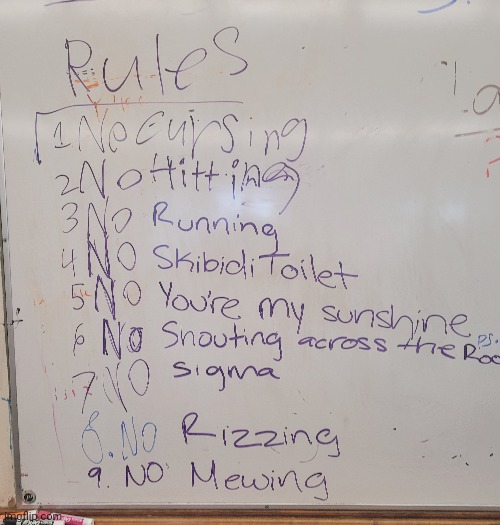 Rules
1 No Cursing
2 No Hitting
3 No Running
4 No Skibidi Toilet
5 No You're my sunshine
6 No Snouting across the Roo
ps.
7 NO sigma
8. No Rizzing
9. NO Mewing
imgflip.com